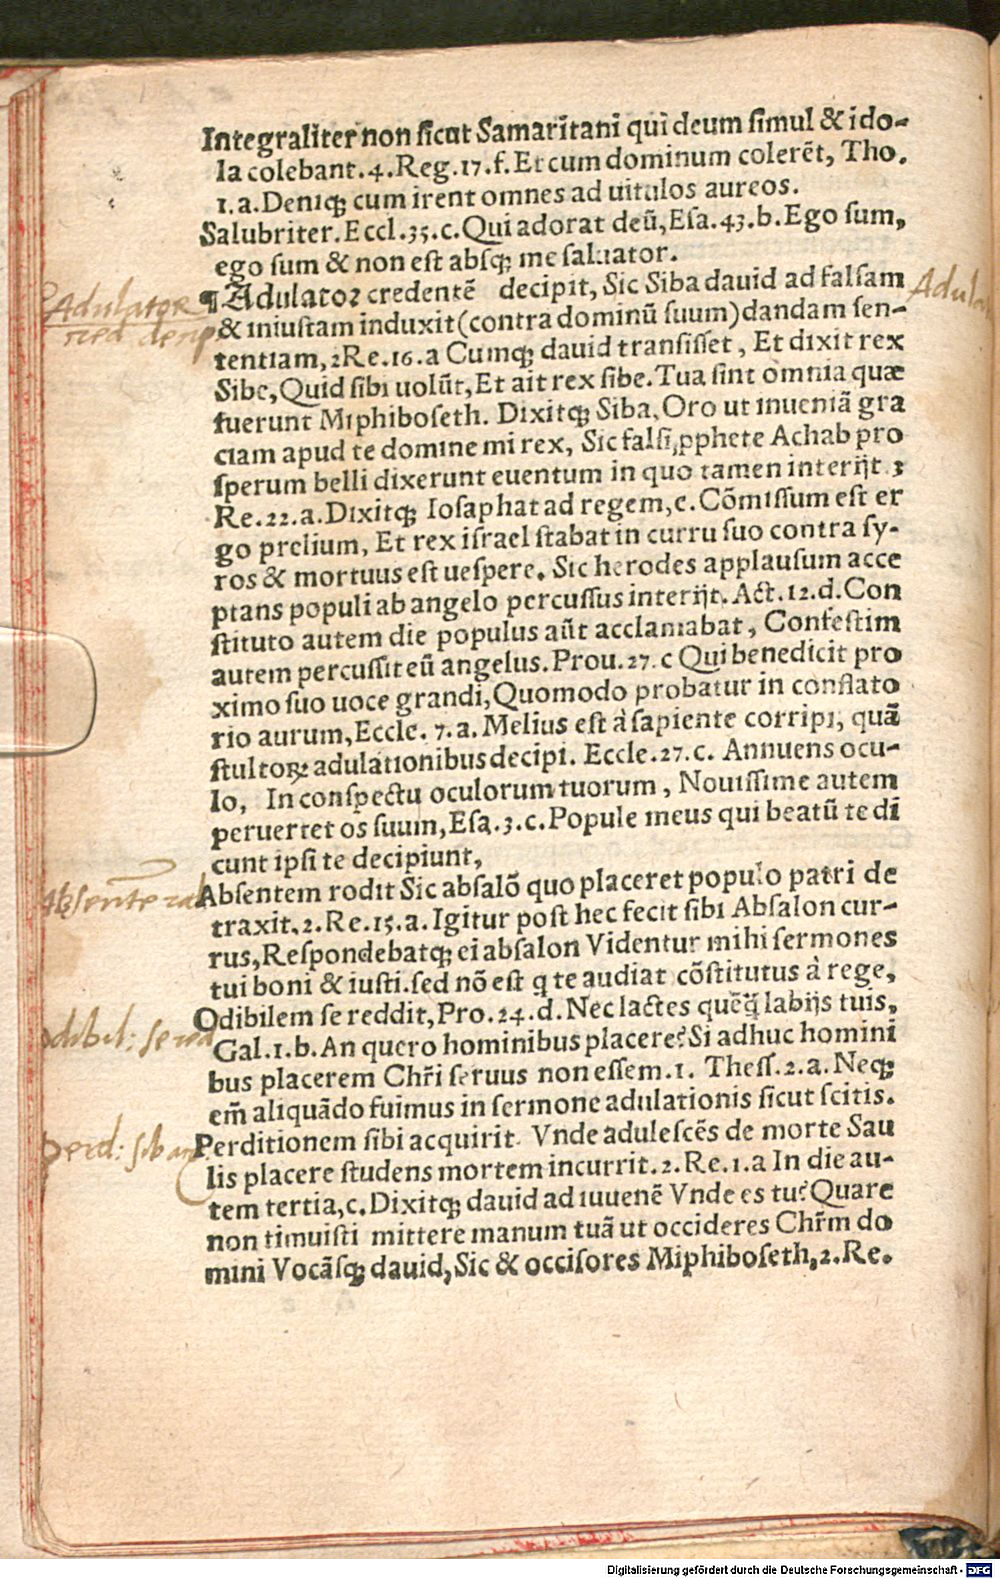 Integraliter non sicut Samaritani qui deum simul & ido-
la colebant.4.Reg.17.f.Et cum dominum colerēt, Tho.
1.a.Deniqꝫ cum irent omnes ad uitulos aureos.
Salubriter.Eccl.35.c.Qui adorat deū,Esa.43.b.Ego sum,
ego sum & non est absqꝫ me saluator.
¶ Adulatoꝛ credentē decipit, Sic Siba dauid ad falsam
& iniustam induxit(contra dominū suum)dandam sen-
tentiam,2Re.16.a Cumqꝫ dauid transisset, Et dixit rex
Sibe,Quid sibi uolūt,Et ait rex sibe.Tua sint omnia quæ
fuerunt Miphiboseth. Dixitqꝫ Siba,Oro ut inueniā gra
ciam apud te domine mi rex, Sic falsi ꝓphete Achab pro
sperum belli dixerunt euentum in quo tamen interijt.3
Re.22.a.Dixitqꝫ Iosaphat ad regem,c.Cōmissum est er
go prelium, Et rex israel stabat in curru suo contra sy-
ros & mortuus est uespere. Sic herodes applausum acce
ptans populi ab angelo percussus interijt. Act.12.d.Con
stituto autem die populus aūt acclamabat, Confestim
autem percussit eū angelus.Prou.27.c Qui benedicit pro
ximo suo uoce grandi,Quomodo probatur in conflato
rio aurum,Eccle. 7.a. Melius est à sapiente corripi, quā
stultoꝝ adulationibus decipi. Eccle.27.c. Annuens ocu-
lo, In conspectu oculorum tuorum, Nouissime autem
peruertet os suum,Esa.3.c.Popule meus qui beatū te di
cunt ipsi te decipiunt,
Absentem rodit Sic absalō quo placeret populo patri de
traxit.2.Re.15.a.Igitur post hec fecit sibi Absalon cur-
rus,Respondebatqꝫ ei absalon Videntur mihi sermones
tui boni & iusti.sed nō est q te audiat cōstitutus à rege,
Odibilem se reddit,Pro.24.d.Nec lactes quēq̄ labijs tuis,
Gal.1.b.An quero hominibus placere?Si adhuc homini
bus placerem Chr̄i seruus non essem.1. Thess.2.a.Neqꝫ
em̄ aliquādo fuimus in sermone adulationis sicut scitis.
Perditionem sibi acquirit. Vnde adulescēs de morte Sau
lis placere studens mortem incurrit.2.Re.1.a In die au-
tem tertia,c.Dixitqꝫ dauid ad iuuenē Vnde es tu?Quare
non timuisti mittere manum tuā ut occideres Chr̄m do
mini Vocāsqꝫ dauid,Sic & occisores Miphiboseth,2.Re.
Adulator
Adula
Absentē
Odibil: se red
Perd: sib
Digitalisierung gefördert durch die Deutsche Forschungsgemeinschaft - DFG